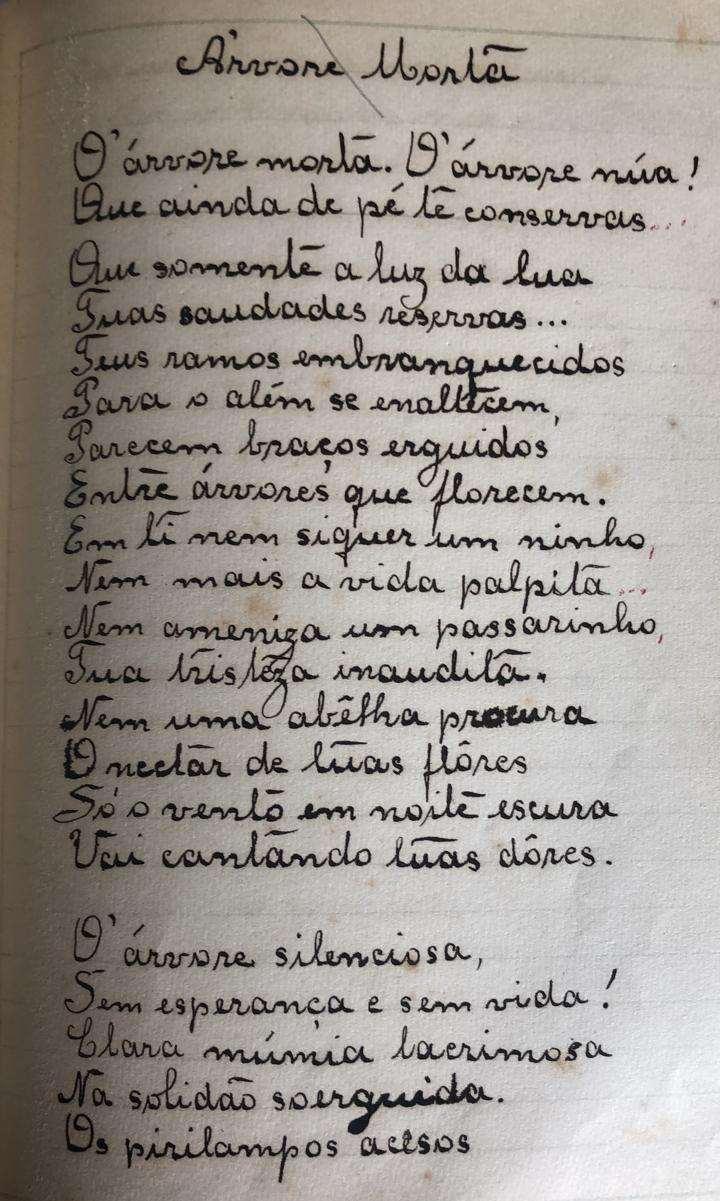 Árvore Morta
O' árvore morta. O' árvore núa!
Que ainda de pé te conservas...
Que somente a luz da lua
Tuas saudades reservas...
Teus ramos embranquecidos
Para o além se enaltecem,
Parecem braços erguidos
Entre árvores que florecem.
Em ti nem siquer um ninho,
Nem mais a vida palpita...
Nem ameniza um passarinho,
Tua tristeza inaudita.
Nem uma abêlha procura
O nectar de tuas flôres
Só o vento em noite escura
Vai cantando tuas dôres.
O' árvore silenciosa,
Sem esperança e sem vida!
Clara múmia lacrimosa
Na solidão soerguida.
Os pirilampos acesos